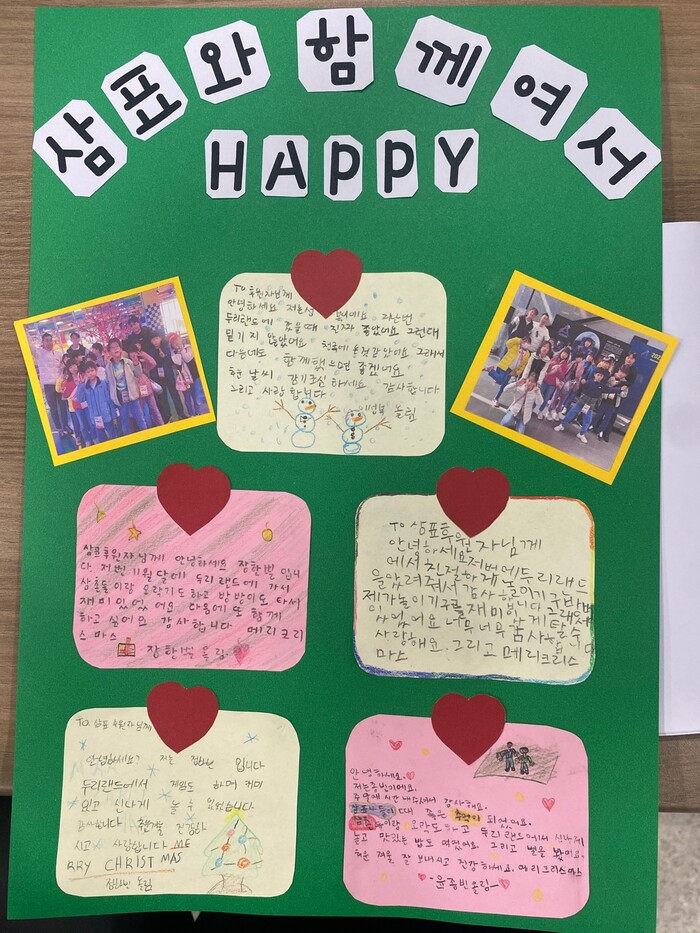 삼표와 함께여서
HAPPY
To 후원자님께
안녕하세요 저는
두리랜드에 갔을때 진짜 좋았어요 그런대
믿기지 않았어요 천국에 온것같았어요 그래서
다음에도 함께했으면 좋겠어요
추운 날씨 감기조심 하세요 감사합니다
그리고 사랑합니다
올림
삼표후원자님께 안녕하세요 장한별 입니
다 저번 11월 달에 두리랜드에 가서
삼촌들이랑 오락기도 하고 방방이도 타서
재미있었어요 다음에 또 함께
하고 싶어요 감사합니다 메리크리
스마스
장한별 올림
To 삼표후원자님께
안녕하세요저번에두리랜드
에서친절하게놀이기구방법
을알려줘서감사합니다그래서
제가놀이기구를재미있게탈수
있었어요너무너무감사합니다
사랑해요.그리고메리크리스
마스
TO. 삼표 후원자님께
안녕하세요? 저는 입니다
두리랜드에서 게임도 하며 재미
있고 신나게 놀 수 있었습니다.
감사합니다 추운겨울 건강하
시고 사랑합니다 ME
RRY CHRISTMAS
올림
안녕하세요.
저는종빈이에요.
주말에 시간 내주셔서 감사해요.
때 꼭은 추억이 되었어요.
삼촌들이랑 오락도하고 두리랜드에서 신나게
놀고 맛있는 밥도 먹었어요. 그리고 별을 봤어요.
추운 겨울 잘 보내시고 건강하세요. 메리크리스마스
-윤종빈올림-